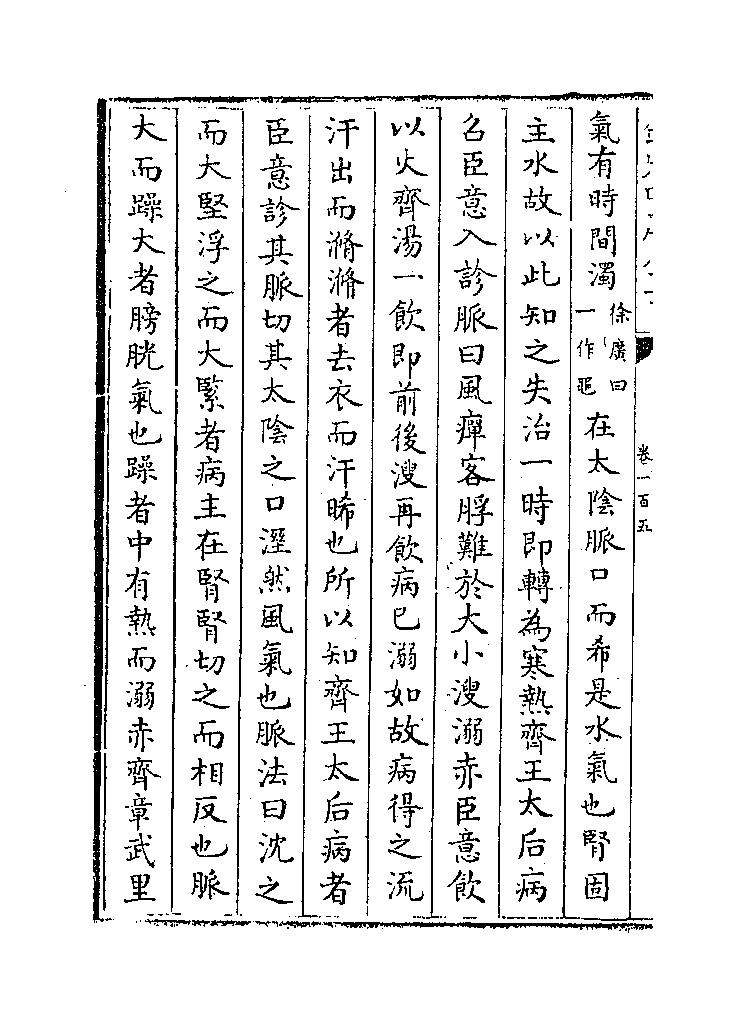 氣有時間濁徐廣曰一作黽在太陰脈口而希是水氣也腎固
主水故以此知之失治一時即轉為寒熱齊王太后病
召臣意入診脈曰風癉客脬難於大小溲溺赤臣意飲
以火齊湯一飲即前後溲再飲病已溺如故病得之流
汗出而滫滫者去衣而汗晞也所以知齊王太后病者
臣意診其脈切其太陰之口溼然風氣也脈法曰沈之
而大堅浮之而大緊者病主在腎腎切之而相反也脈
大而躁大者膀胱氣也躁者中有熱而溺赤齊章武里
卷一百五